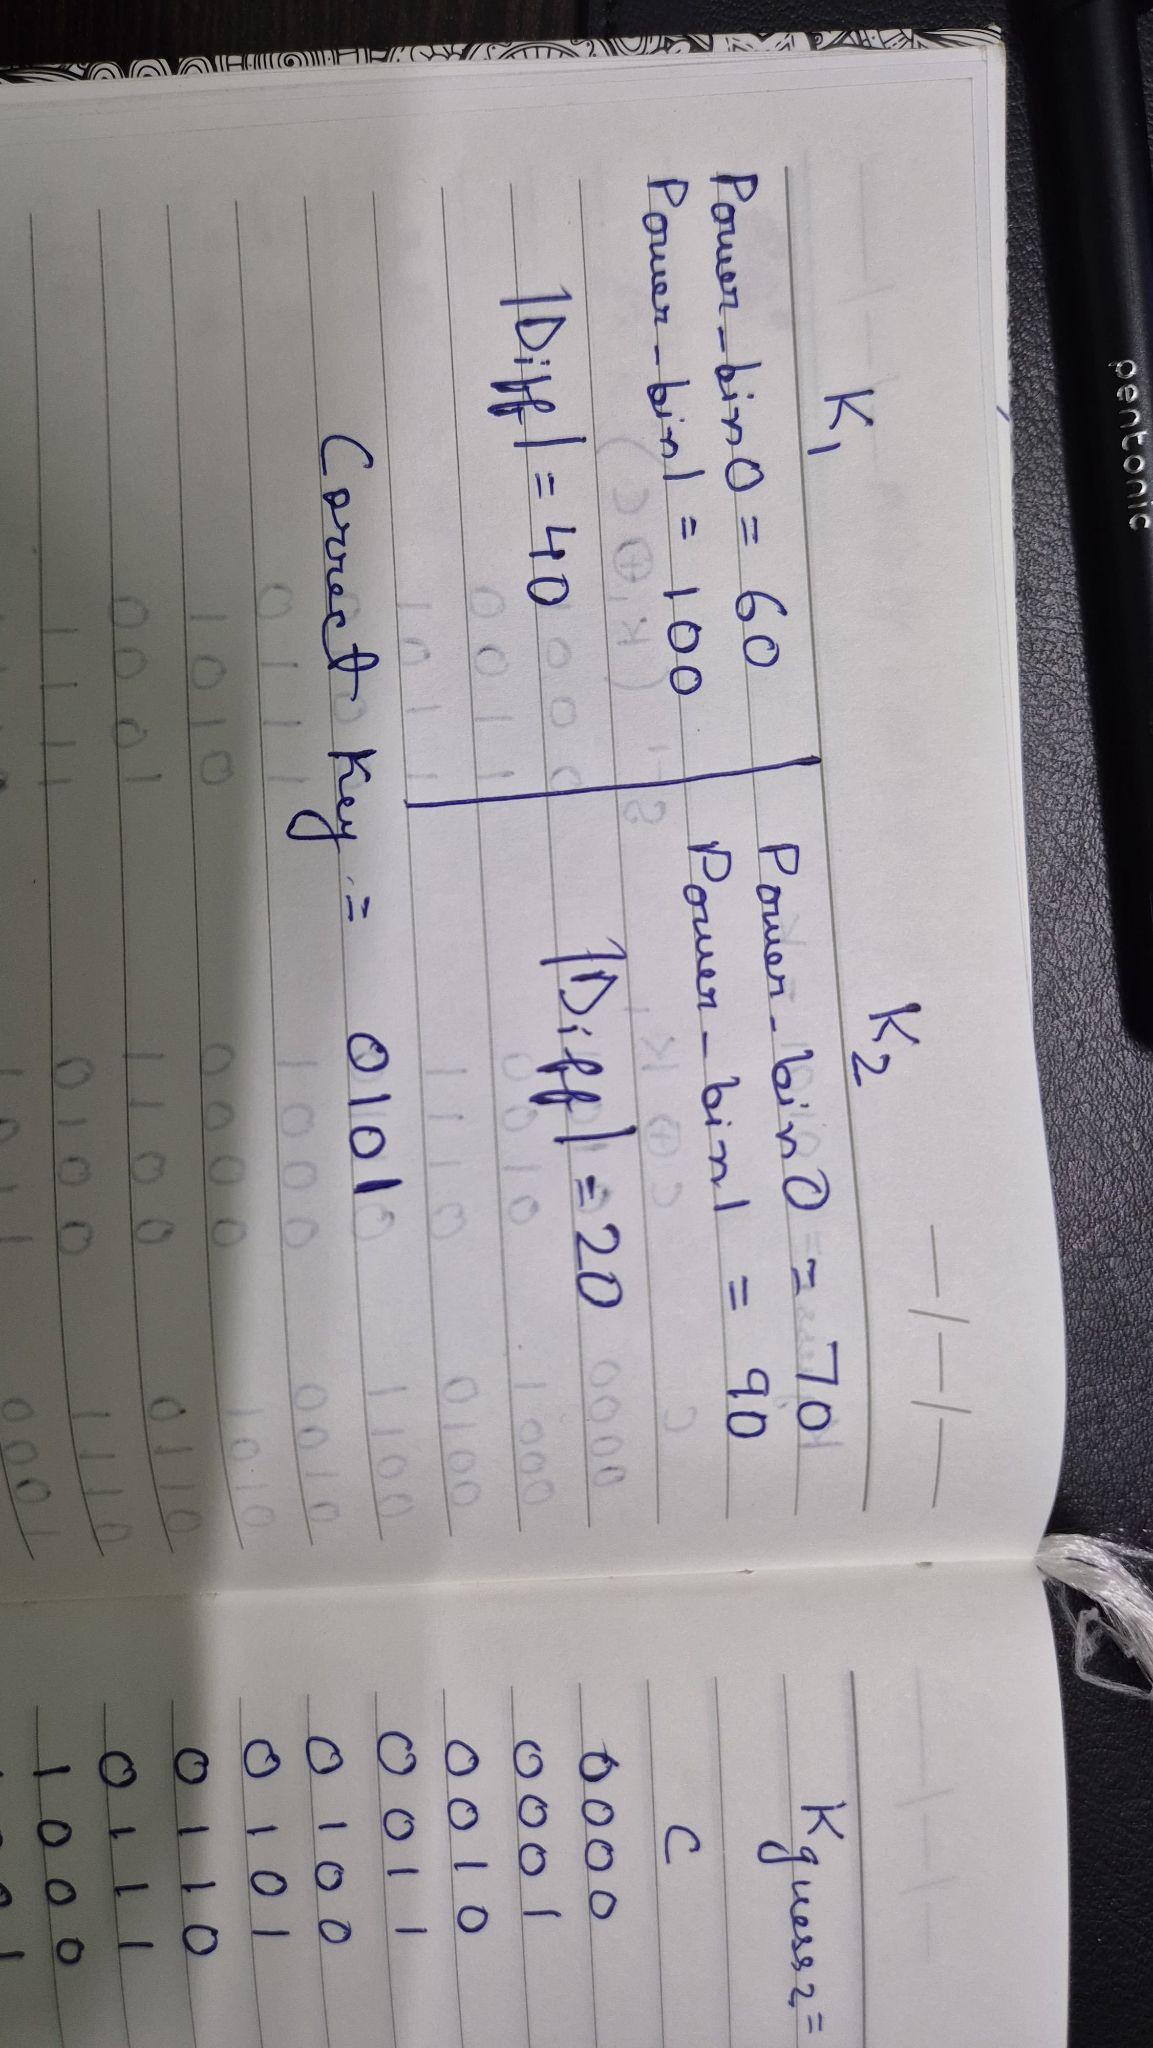 K1
Power_bin0 = 60
Power_bin1 = 100
|Diff| = 40
K2
Power_bin0 = 70
Power_bin1 = 90
|Diff| = 20
Correct Key = 0101
Kguess2 =
C
0000
0001
0010
0011
0100
0101
0110
0111
1000
pentonic